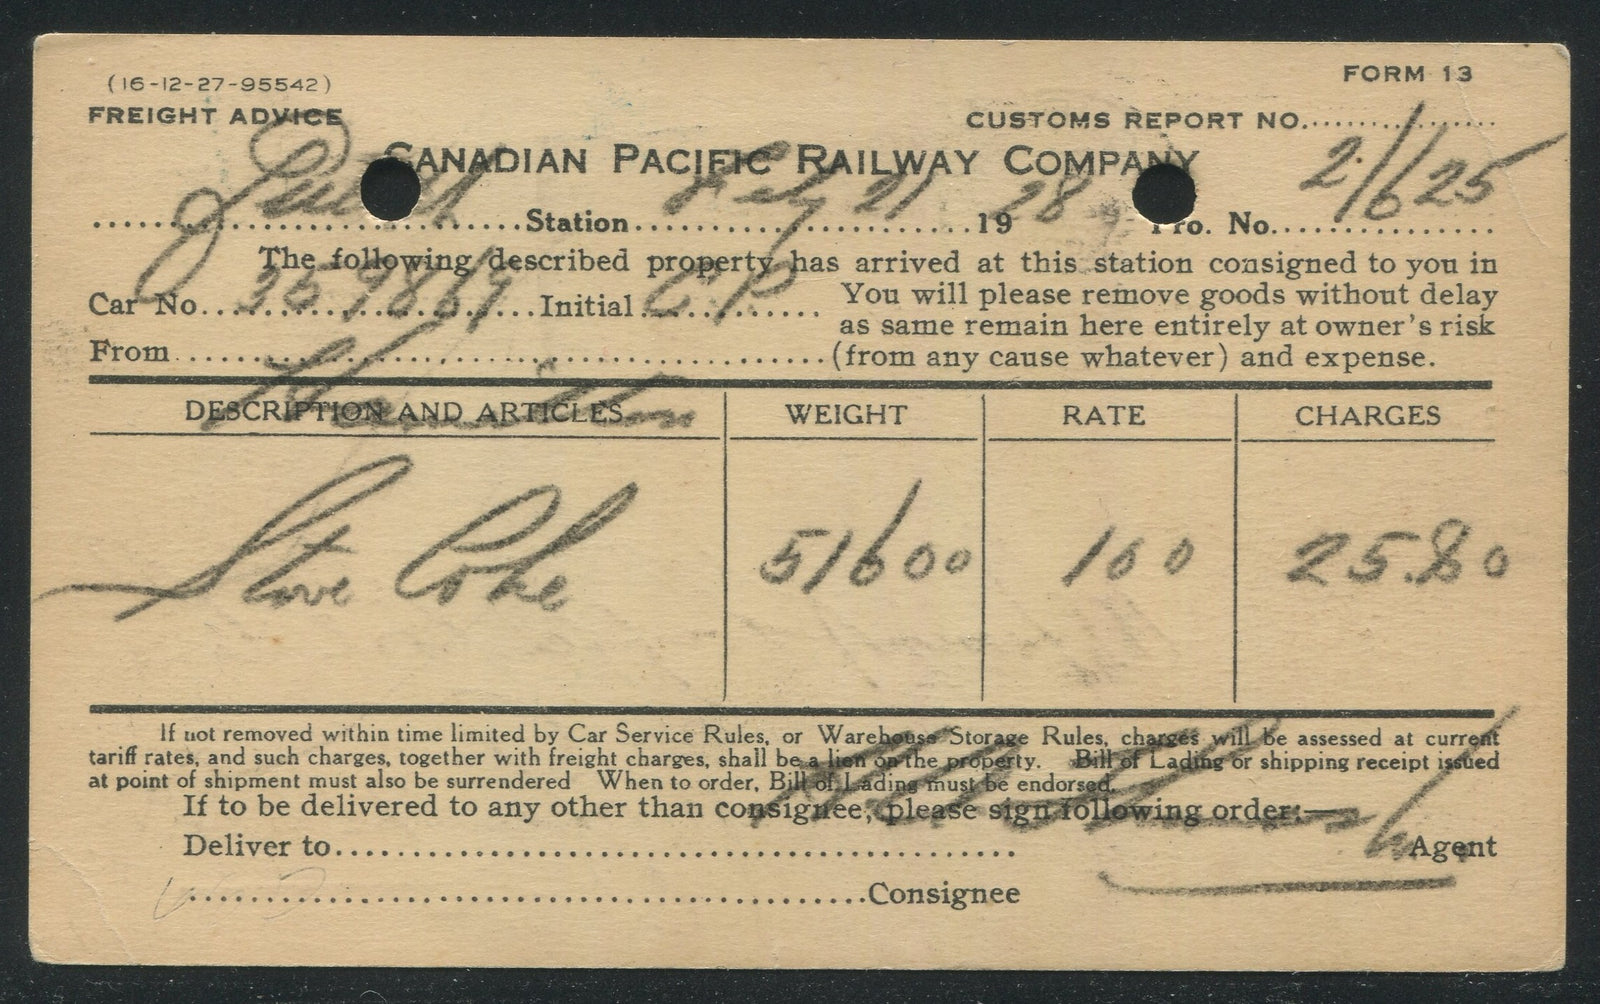 (16-12-27-95542)
FORM 13
FREIGHT ADVICE
CUSTOMS REPORT NO...............
CANADIAN PACIFIC RAILWAY COMPANY
Station Feby 21 1928 Pro. No. 21625
The following described property has arrived at this station consigned to you in
Car No. Initial C.P. You will please remove goods without delay
as same remain here entirely at owner's risk
From Hamilton (from any cause whatever) and expense.
DESCRIPTION AND ARTICLES WEIGHT RATE CHARGES
Stove Coke 51600 100 25.80
If not removed within time limited by Car Service Rules, or Warehouse Storage Rules, charges will be assessed at current
tariff rates, and such charges, together with freight charges, shall be a lien on the property. Bill of Lading or shipping receipt issued
at point of shipment must also be surrendered When to order, Bill of Lading must be endorsed.
If to be delivered to any other than consignee, please sign following order:—
Deliver to........................................... Agent
...........................................Consignee